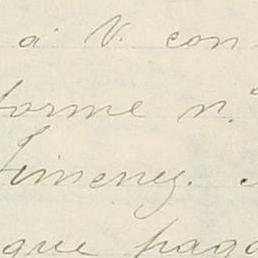 á V. con
forme n.º
Jimenez.
que pago